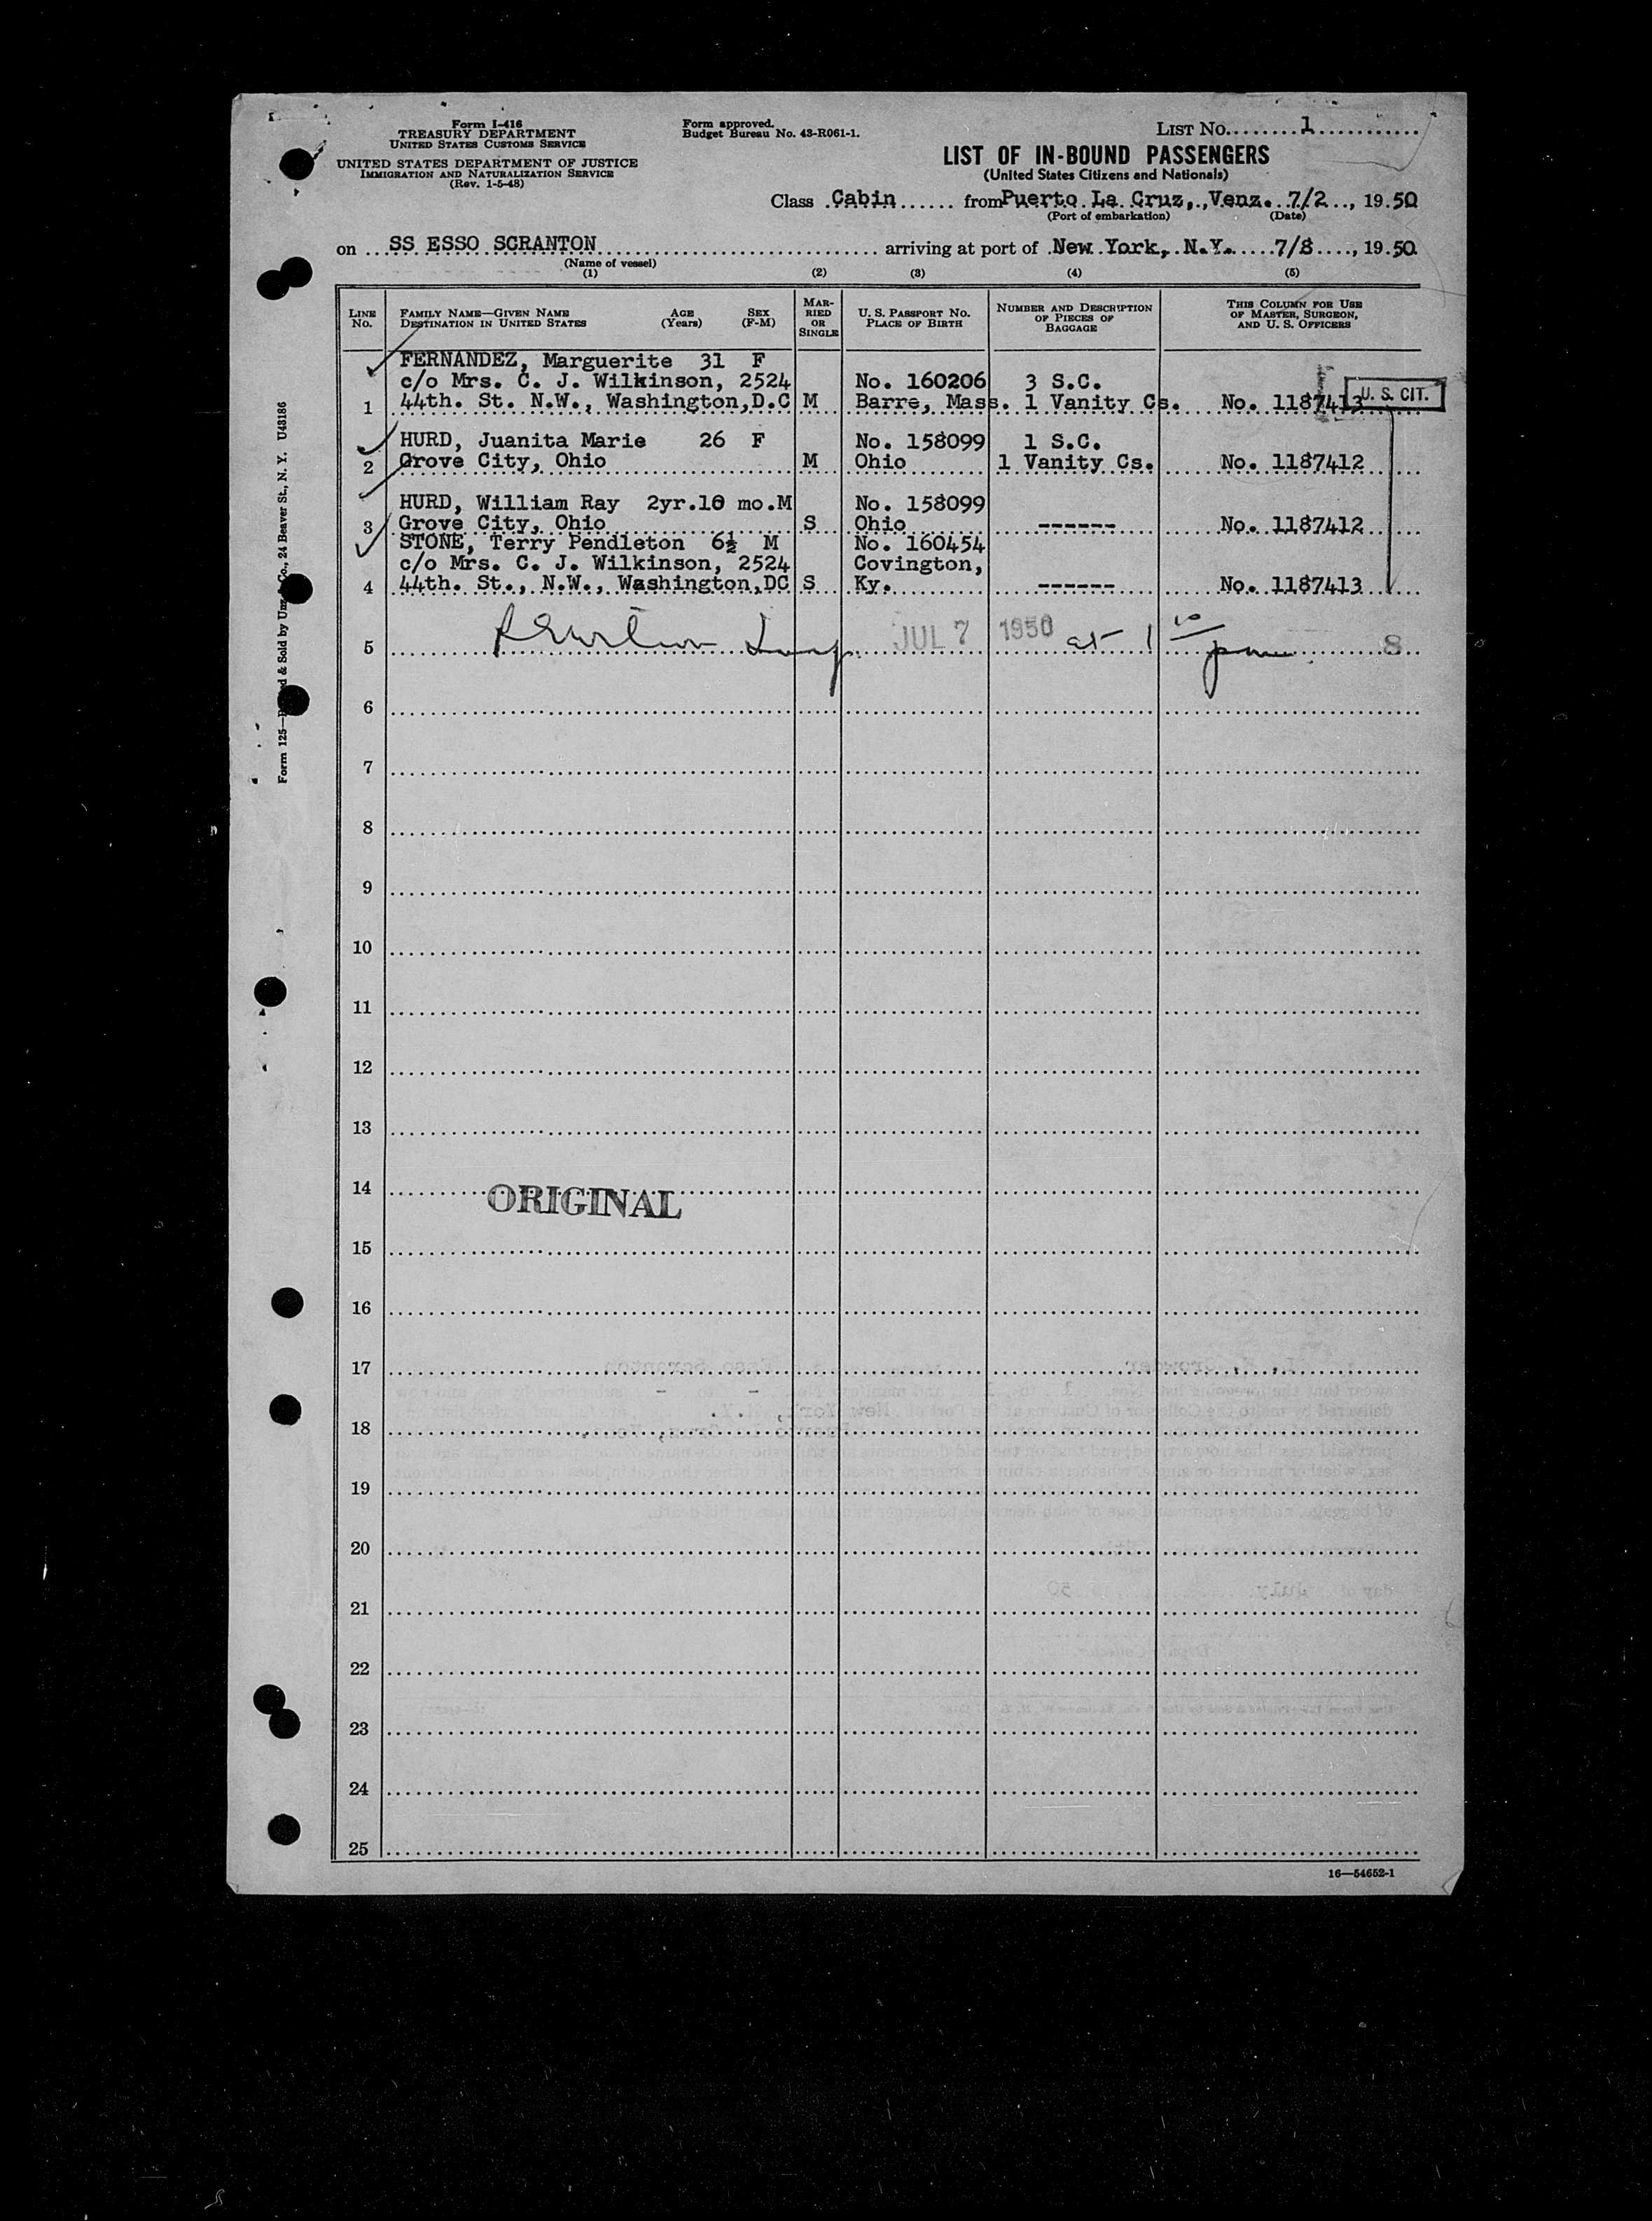 Form I-416
TREASURY DEPARTMENT
UNITED STATES CUSTOMS SERVICE
UNITED STATES DEPARTMENT OF JUSTICE
IMMIGRATION AND NATURALIZATION SERVICE
(Rev. 1-5-48)
Form approved.
Budget Bureau No. 43-R061-1.
LIST NO. 1
LIST OF IN-BOUND PASSENGERS
(United States Citizens and Nationals)
Class Cabin from Puerto La Cruz, Venz. 7/2, 1950
(Port of embarkation) (Date)
on SS ESSO SCRANTON arriving at port of New York, N.Y. 7/8, 1950
(Name of vessel)
(1) (2) (3) (4) (5)
LINE NO.
FAMILY NAME—GIVEN NAME
DESTINATION IN UNITED STATES
AGE (Years)
SEX (F-M)
MARRIED OR SINGLE
U. S. PASSPORT NO.
PLACE OF BIRTH
NUMBER AND DESCRIPTION OF PIECES OF BAGGAGE
THIS COLUMN FOR USE OF MASTER, SURGEON, AND U. S. OFFICERS
FERNANDEZ, Marguerite 31 F
c/o Mrs. C. J. Wilkinson, 2524 No. 160206 3 S.C.
1 44th. St. N.W., Washington,D.C M Barre, Mass. 1 Vanity Cs. No. 1187413 U. S. CIT.
HURD, Juanita Marie 26 F No. 158099 1 S.C.
2 Grove City, Ohio M Ohio 1 Vanity Cs. No. 1187412
HURD, William Ray 2yr.10 mo.M No. 158099
3 Grove City, Ohio S Ohio ------ No. 1187412
STONE, Terry Pendleton 6½ M No. 160454
c/o Mrs. C. J. Wilkinson, 2524 Covington,
4 44th. St., N.W., Washington,DC S Ky. ------ No. 1187413
5 JUL 7 1950 at 1 10 pm 8
6
7
8
9
10
11
12
13
14
ORIGINAL
15
16
17
18
19
20
21
22
23
24
25
16—54652-1